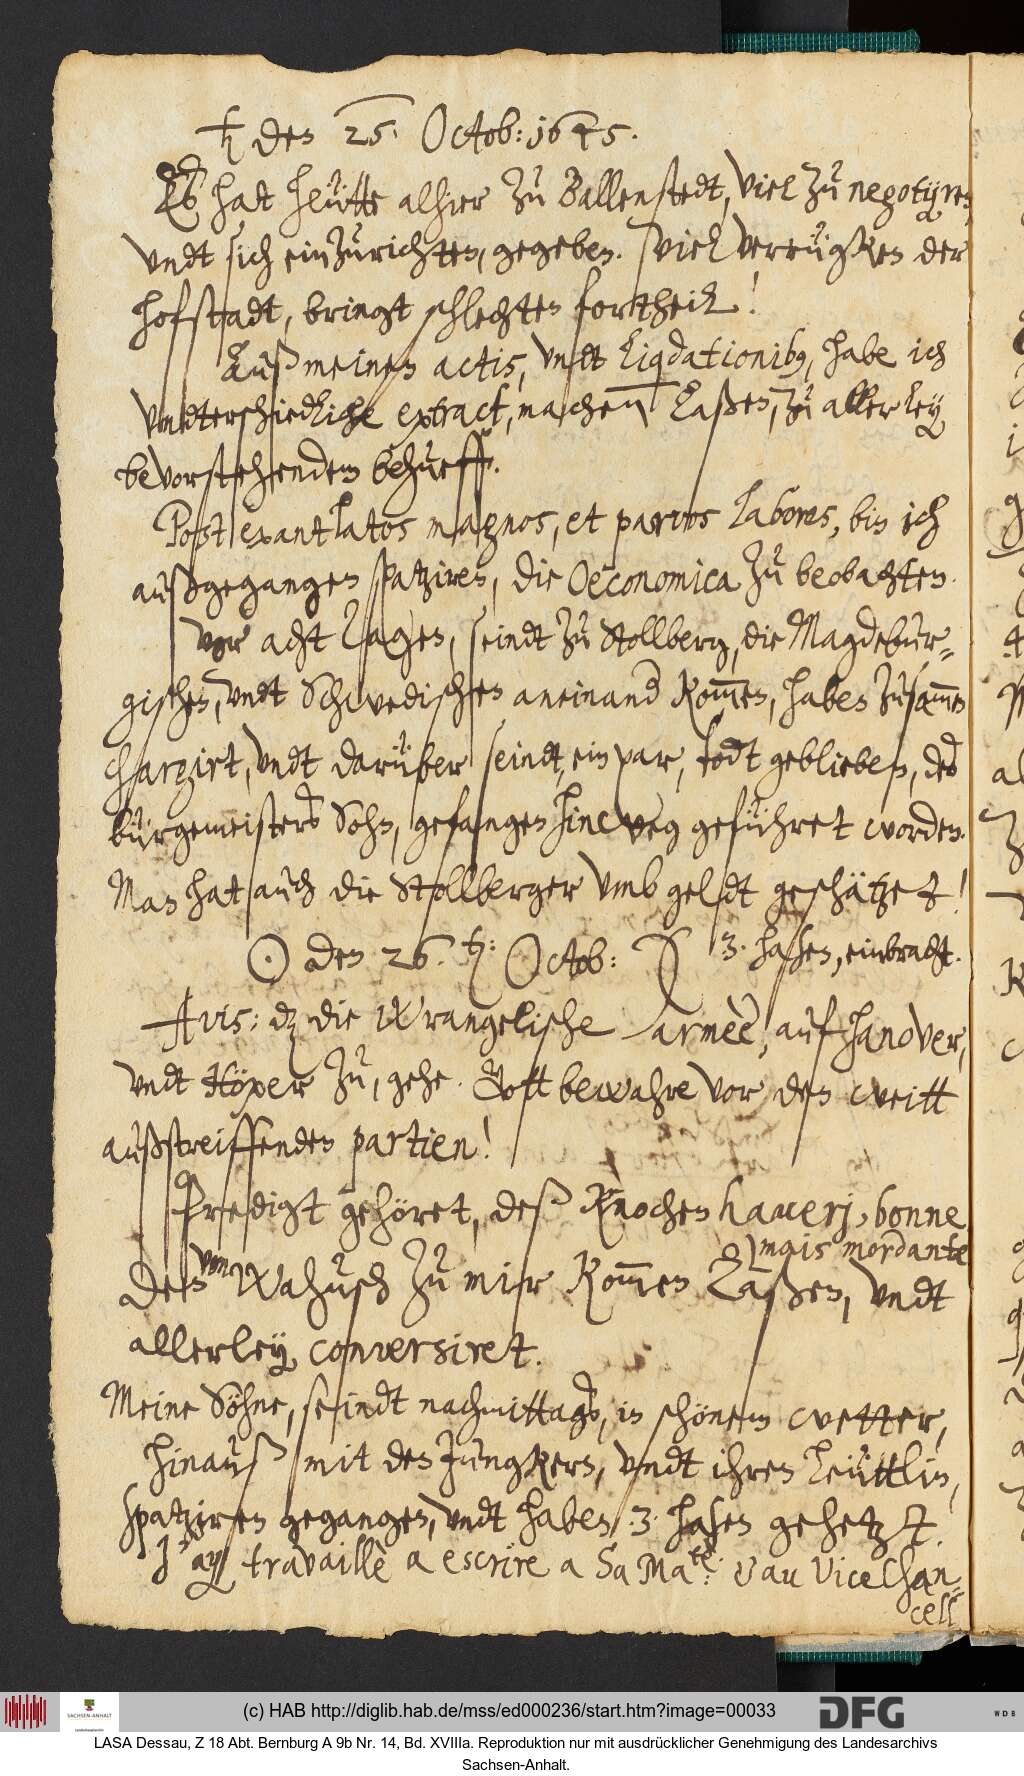 ♄ den 25. Octob: 1645.
Es hat heütte alhier zu Ballenstedt, viel zu negotijren,
vndt sich einzurichten, gegeben. Viel verrügken der
hofstadt, bringt schlechten fortheil!
Auß meinen actis, vndt liq(ui)dationib(us), habe ich
vndterschiedliche extract, machen laßen, zu allerley
bevorstehendem behueff.
Post exantlatos magnos, et parvos labores, bin ich
außgegangen spatziren, die Oeconomica zu beobachten.
Vor acht Tagen, seindt zu Stollberg, die Magdebur-
gischen, vndt Schwedischen aneinand(er) kom̅en, haben zusam̅en
chargirt, vndt darüber seindt, ein par, todt geblieben, des
bürgemeisters Sohn, gefangen hinweg geführet worden.
Man hat auch die Stollberger vmb geldt geschätzet!
☉ den 26. ♄: Octob: 3. hasen, einbracht.
Avis: dz die Wrangelische armèè, auf Hanover,
vndt Höxer zu, gehe. Gott bewahre vor den weitt
außstreiffenden partien!
Predigt gehöret, deß Knochenhauerj, bonne
mais mordante
Den von Wahusch zu mir kom̅en laßen, vndt
allerley conversiret.
Meine Söhne, seindt nachmittags, in schönem wetter,
hinauß mit den Jungkern, vndt ihren leüttlin,
spatziren gegangen, vndt haben 3. hasen gehetzt.
J'ay travaillè a escrire a Sa Ma.te: & au ViceChan-
cell
(c) HAB http://diglib.hab.de/mss/ed000236/start.htm?image=00033
SACHSEN-ANHALT
DFG
WDB
LASA Dessau, Z 18 Abt. Bernburg A 9b Nr. 14, Bd. XVIIIa. Reproduktion nur mit ausdrücklicher Genehmigung des Landesarchivs
Sachsen-Anhalt.